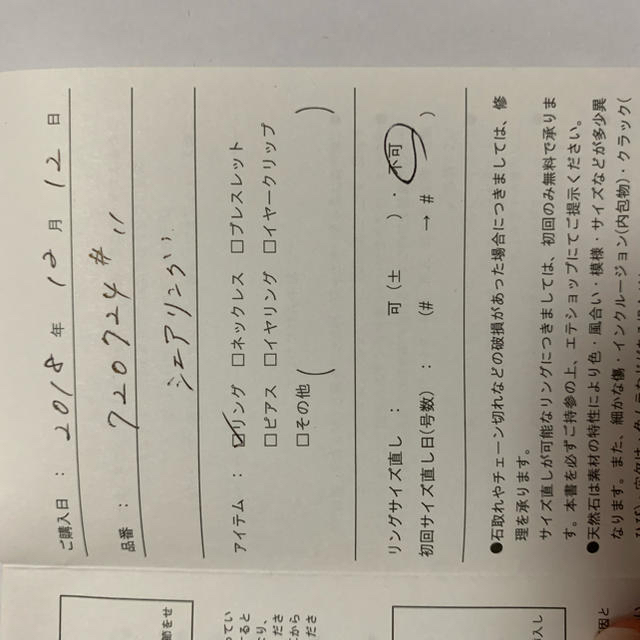 ご購入日 ： 2018 年 12 月 12 日
品番 ： 720724 # 11
シェアリング
アイテム ： ☑リング □ネックレス □ブレスレット
□ピアス □イヤリング □イヤークリップ
□その他（ ）
リングサイズ直し ： 可（± ）・不可
初回サイズ直し日（号数） ： （# → # ）
●石取れやチェーン切れなどの破損があった場合につきましては、修
理を承ります。
サイズ直しが可能なリングにつきましては、初回のみ無料で承りま
す。本書を必ずご持参の上、エテショップにてご提示ください。
●天然石は素材の特性により色・風合い・模様・サイズなどが多少異
なります。また、細かな傷・インクルージョン(内包物)・クラック(